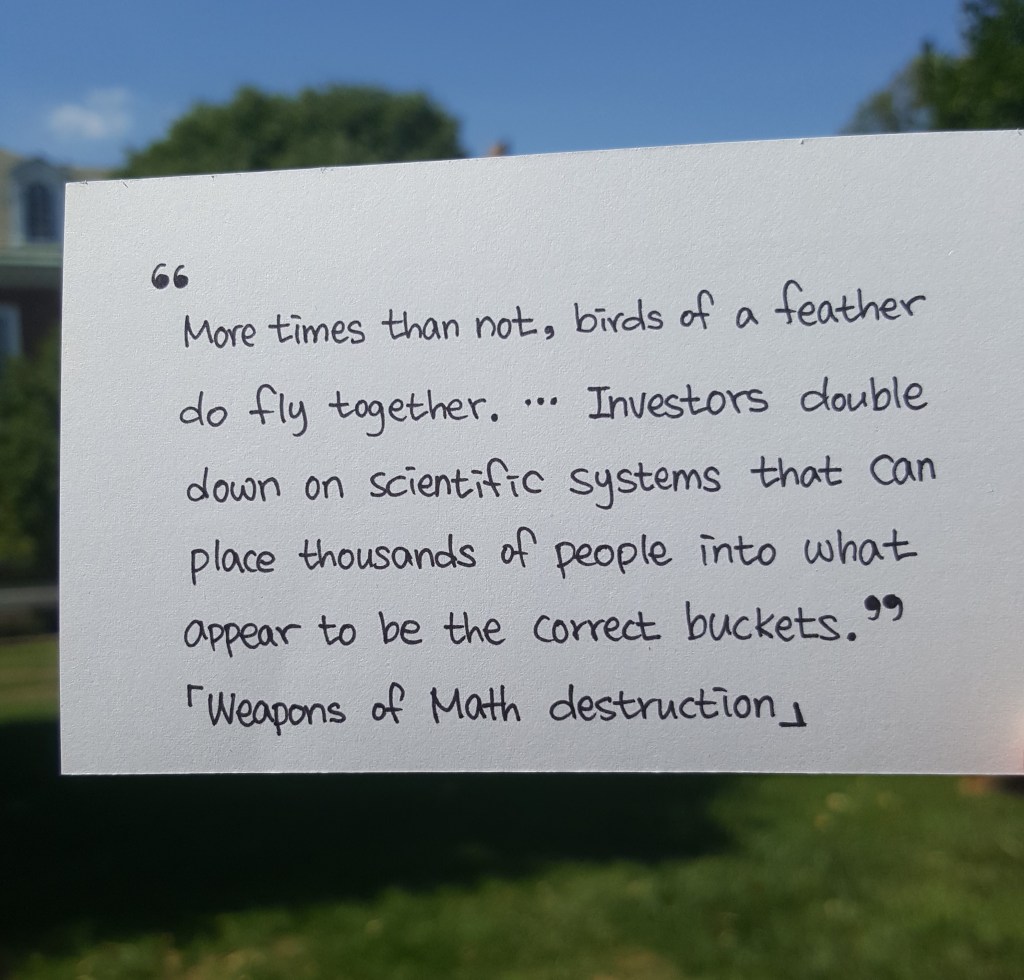 “
More times than not, birds of a feather
do fly together. ... Investors double
down on scientific systems that can
place thousands of people into what
appear to be the correct buckets.”
「Weapons of Math destruction」